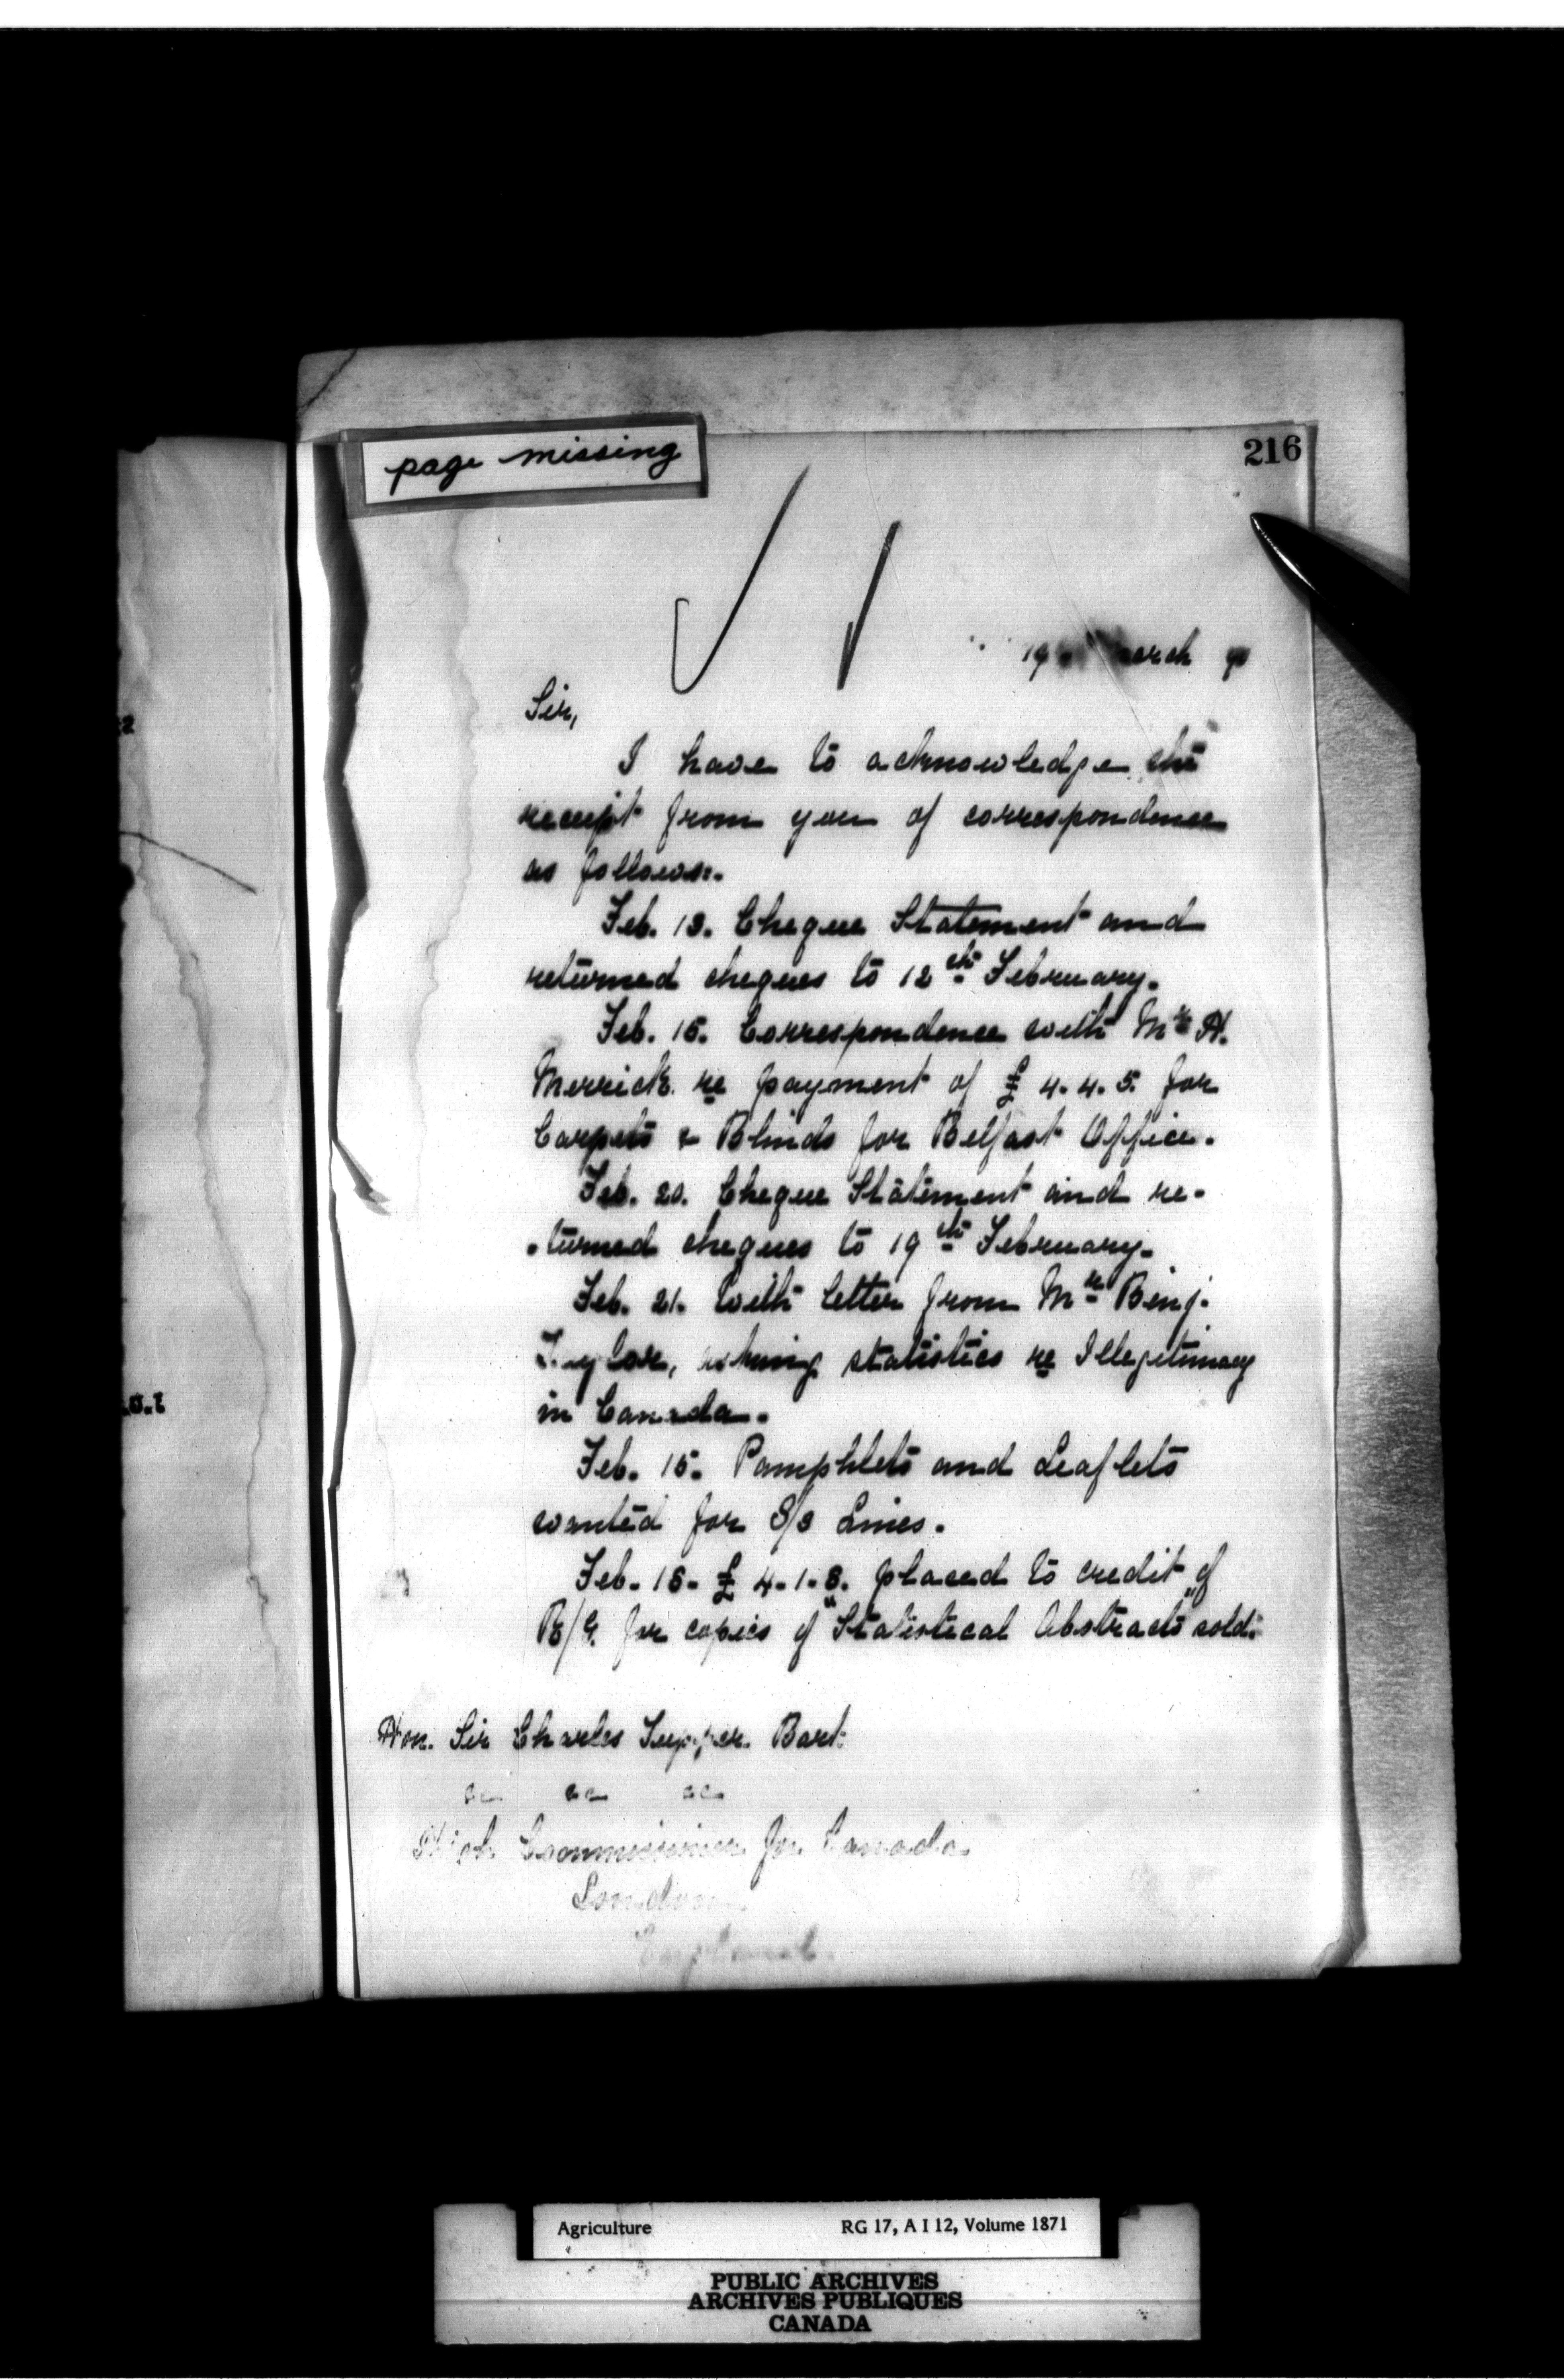 page missing
216
19 March 90
Sir,
I have to acknowledge the
receipt from you of correspondence
as follows:-
Feb. 13. Cheque Statement and
returned cheques to 12th February.
Feb. 15. Correspondence with Mr H.
Merrick re payment of £4.4.5. for
Carpets & Blinds for Belfast Office.
Feb. 20. Cheque Statement and re-
-turned cheques to 19th February.
Feb. 21. With letter from Mr Benj.
Taylor, asking statistics re Illegitimacy
in Canada.
Feb. 15. Pamphlets and Leaflets
wanted for S/S Lines.
Feb. 18. £4-1-8. placed to credit of
R/G. for copies of "Statistical Abstracts" sold.
Hon. Sir Charles Tupper Bart.
&c &c &c
High Commissioner for Canada
London
England.
Agriculture RG 17, A I 12, Volume 1871
PUBLIC ARCHIVES
ARCHIVES PUBLIQUES
CANADA